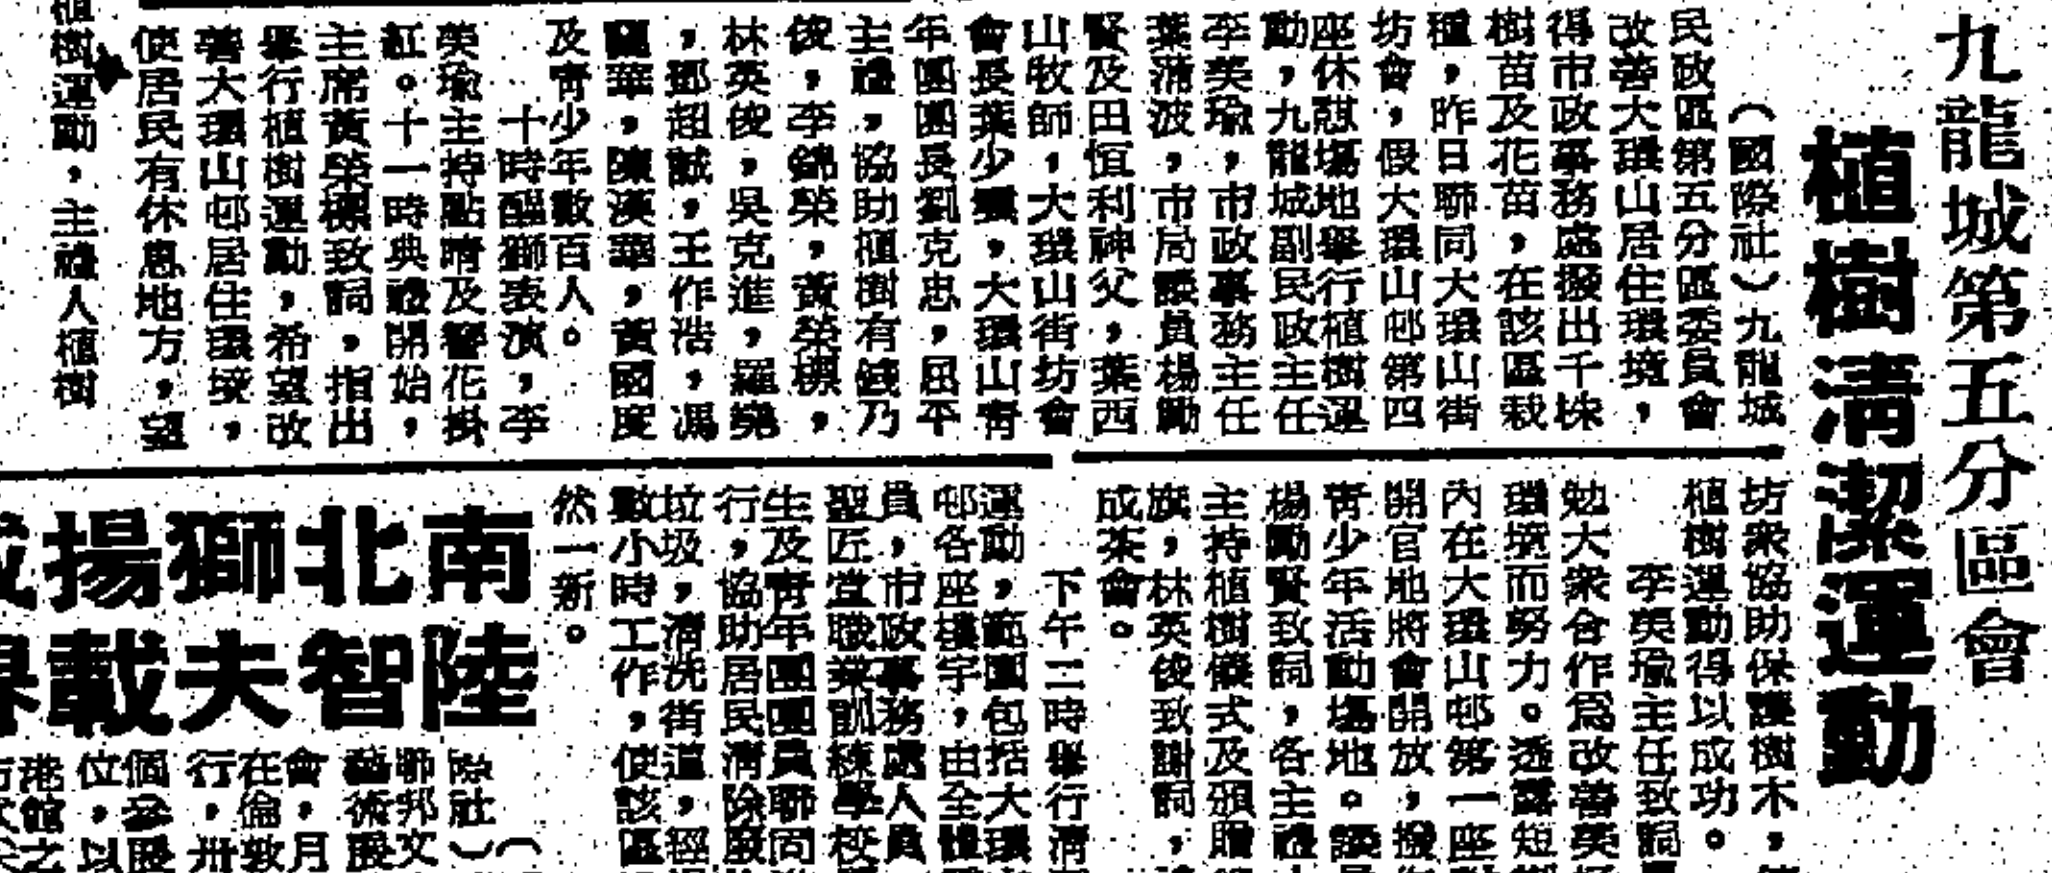 九龍城第五分區會
植樹清潔運動
（國際社）九龍城
民政區第五分區委員會
改善大環山居住環境，
得市政事務處撥出千株
樹苗及花苗，在該區栽
種，昨日聯同大環山街
坊會，假大環山邨第四
座休憇場地舉行植樹運
動，九龍城副民政主任
李美瑜，市政事務主任
葉蒲波，市局議員楊勵
賢及田恒利神父，葉西
山牧師，大環山街坊會
會長葉少雲，大環山青
年團團長劉克忠，屈平
主禮，協助植樹有錢乃
俊，李錦榮，黃榮標，
林英俊，吳克進，羅堯
，鄧超誠，王作浩，馮
華，陳漢華，黃國度
及青少年數百人。
十時醒獅表演，李
美瑜主持點睛及簪花掛
紅。十一時典禮開始，
主席黃榮標致詞，指出
舉行植樹運動，希望改
善大環山邨居住環境，
使居民有休息地方，望
坊衆協助保護樹木，
植樹運動得以成功。
李美瑜主任致詞
勉大衆合作爲改善美
環境而努力。透露短
內在大環山邨第一座
開官地將會開放，撥
青少年活動場地。議
楊勵賢致詞，各主禮
主持植樹儀式及頒贈
旗，林英俊致謝詞，
成茶會。
下午二時舉行清
運動，範圍包括大環
邨各座樓宇，由全體
員，市政事務處人員
聖匠堂職業訓練學校
生及青年團團員聯同
行，協助居民清除廢
垃圾，清洗街道，經
數小時工作，使該區
然一新。
植樹運動，主禮人植樹
南北獅揚
陸智夫載
際社）（
聯邦文
藝術
會，月
在倫敦
行，卅
個參
位，以
港館之